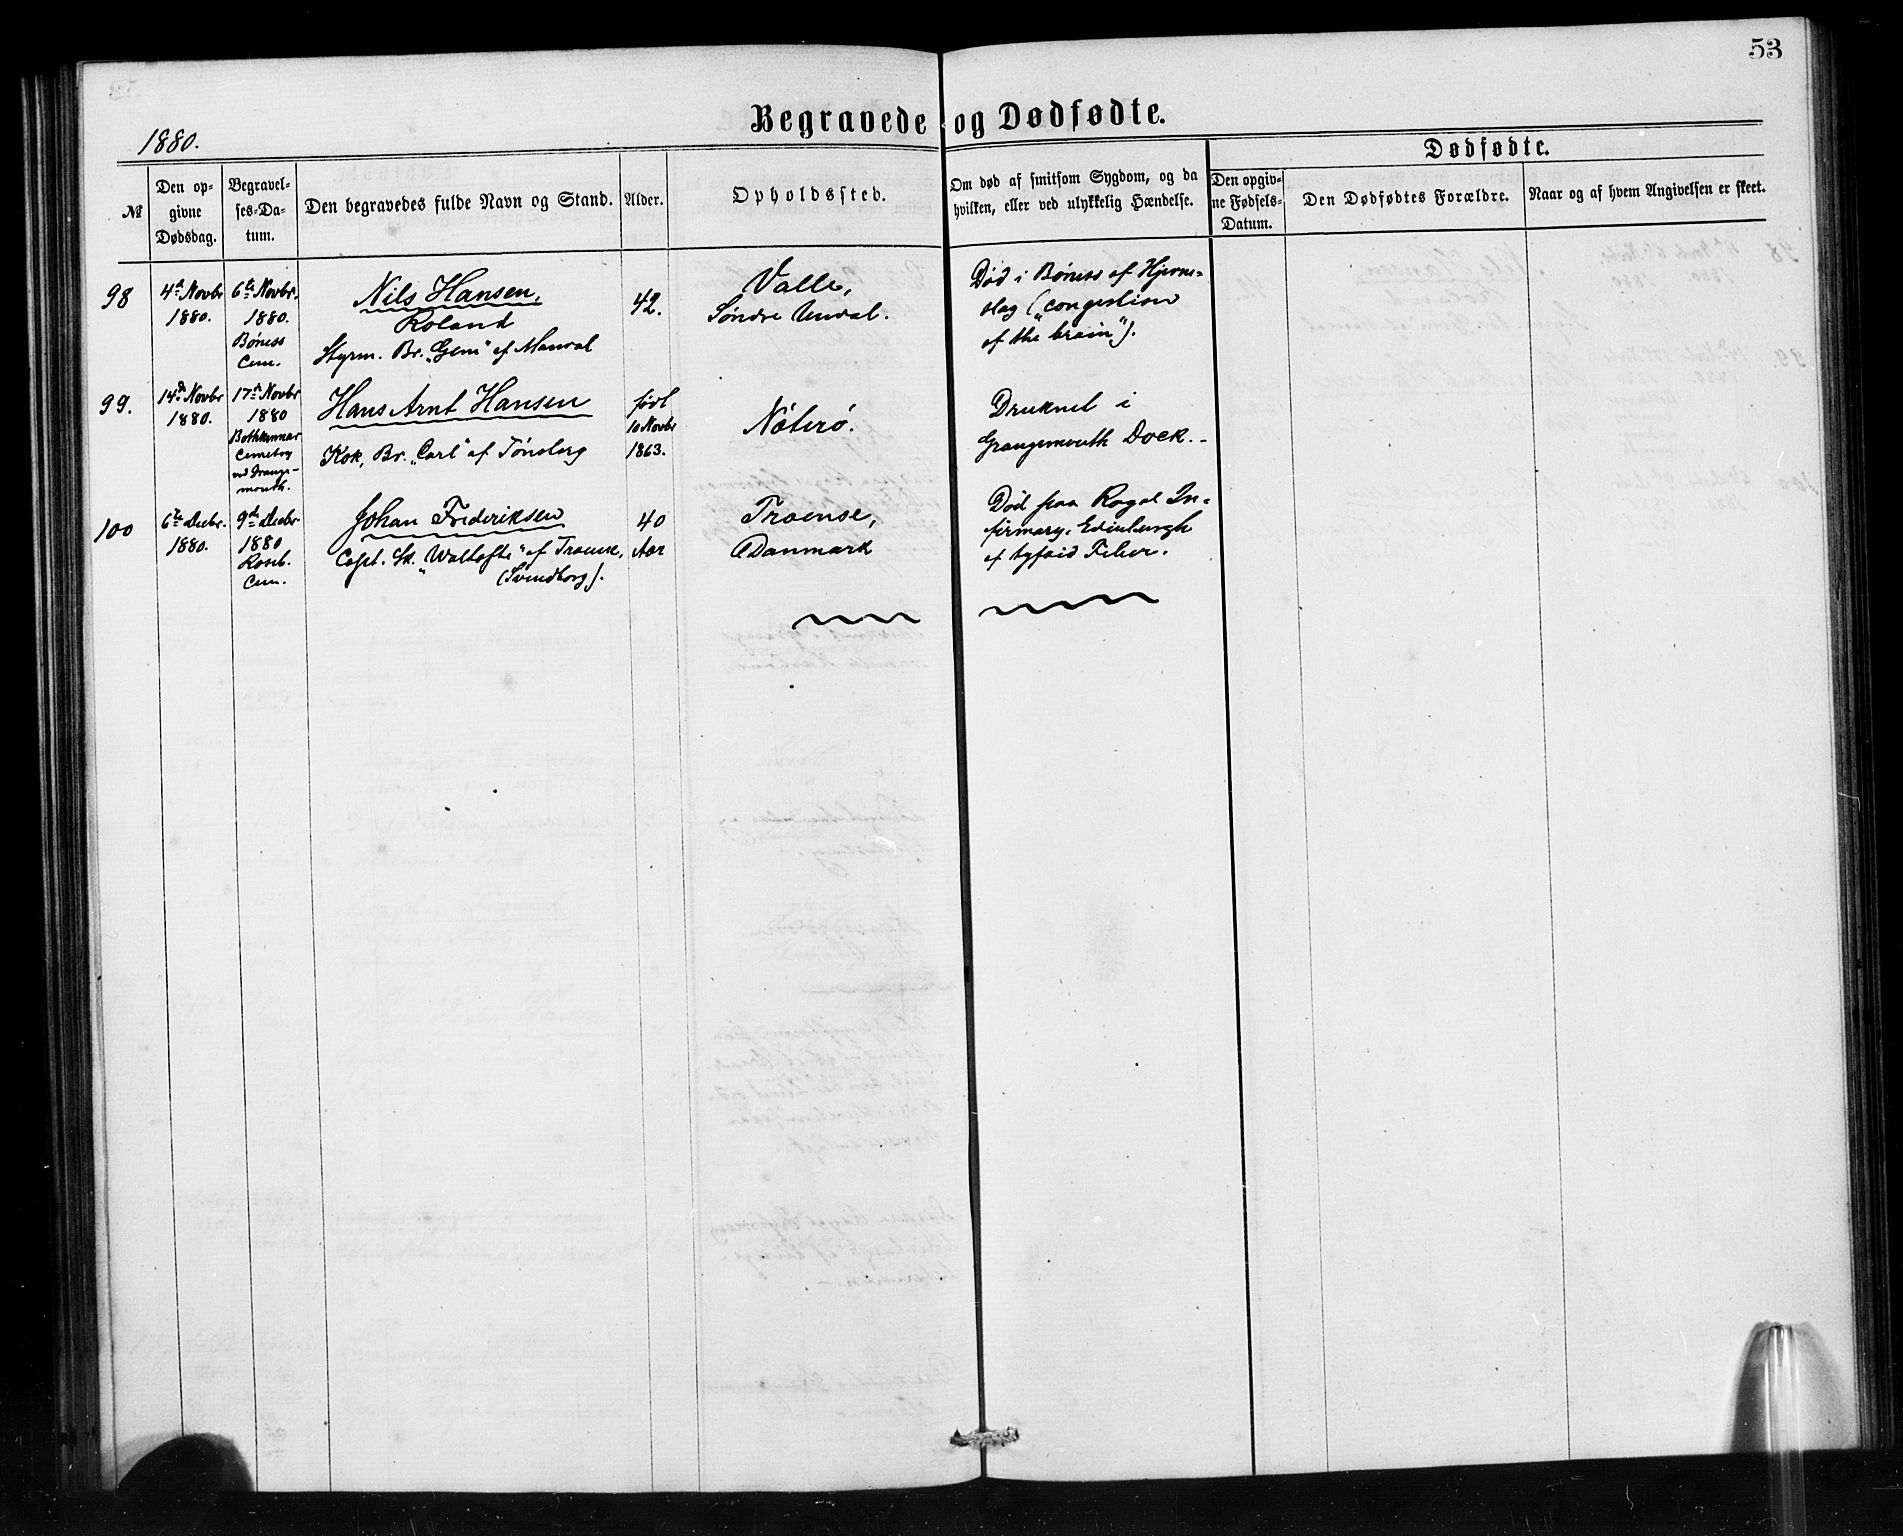 53
Begravede og Dødfødte.
1880.
Dødfødte.
№
Den op-
givne
Dødsdag.
Begravel-
ses-Da-
tum.
Den begravedes fulde Navn og Stand.
Alder.
Opholdssted.
Om død af smitsom Sygdom, og da
hvilken, eller ved ulykkelig Hændelse.
Den opgiv-
ne Fødsels-
Datum.
Den Dødfødtes Forældre.
Naar og af hvem Angivelsen er skeet.
98
4de Novbr
1880.
6te Novbr.
1880.
Bóness
Cem.
Nils Hansen,
Roland
Styrm. Br. „Gem" af Manval
42.
Valle,
Søndre Undal.
Død i Bóness af Hjerne-
slag („congestion
of the brain").
99.
14de Novbr
1880.
17de Novbr
1880
Bothkennar
Cemetry
ved Grange-
mouth.
Hans Arnt Hansen
Kok, Br. „Carl" af Tönsberg
født
10 Novbr
1863.
Nöterö.
Druknet i
Grangemouth Dock. -
100
6te Decbr.
1880.
9de Decbr
1880
Roseb.
Cem.
Johan Frederiksen
Capt. Sk. „ af Troense,
(Svendborg).
40
Aar
Troense,
Danmark
Död paa Royal In-
firmary, Edinburgh
af tyfoid Feber.